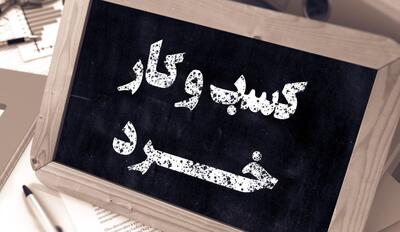 کسب و کار
خرد